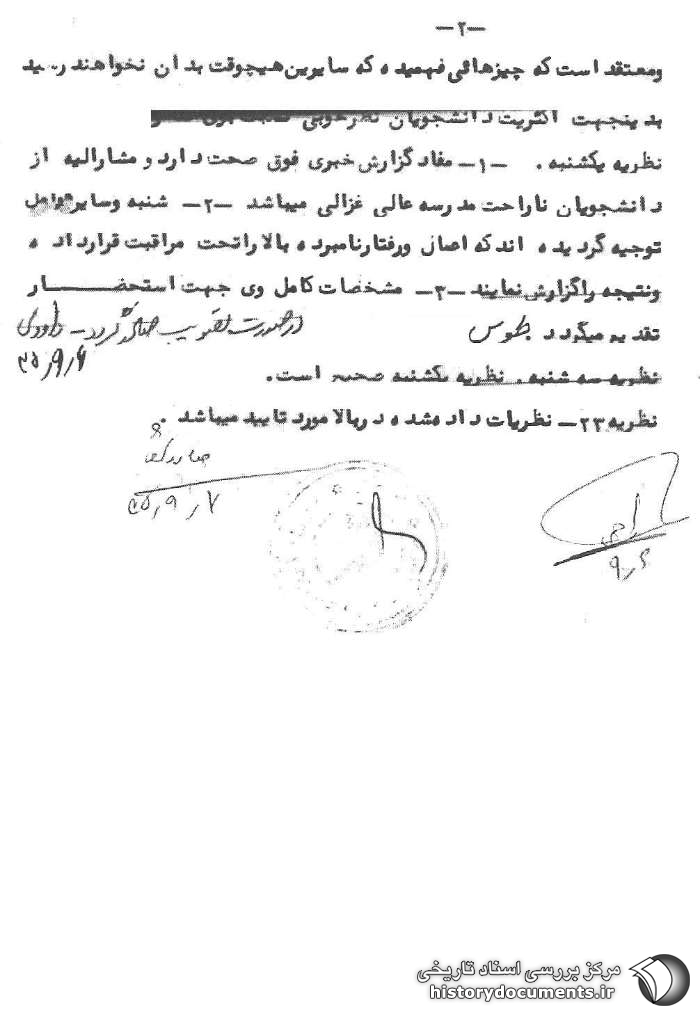 -۲-
ومعتقد است که چیزهائی فهمیده که سایرین هیچوقت بدان نخواهند رسید
بدینجهت اکثریت دانشجویان نظرخوبی نسبت
نظریه یکشنبه . -۱- مفاد گزارش خبری فوق صحت دارد و مشارالیه از
دانشجویان ناراحت مدرسه عالی غزالی میباشد -۲- شنبه وسایرعوامل
توجیه گردیده اندکه اعمال ورفتارنامبرده بالا راتحت مراقبت قرارداده
ونتیجه راگزارش نمایند -۳- مشخصات کامل وی جهت استحضار
تقدیم میگردد بطوس
در صورت تصویب صادر گردد - داودی
۳۵٫۹٫۶
نظریه سه شنبه . نظریه یکشنبه صحیح است.
نظریه ۲۳- نظریات داده شده دربالا مورد تایید میباشد .
۳۵٫۹٫۷
۹٫۶
مرکز بررسی اسناد تاریخی
historydocuments.ir